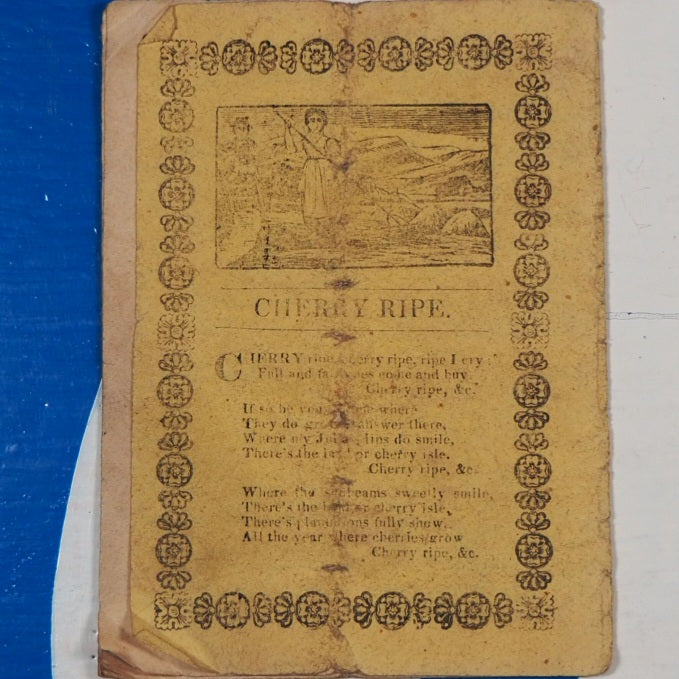 CHERRY RIPE.
CHERRY ripe, cherry ripe, ripe I cry
Full and fair ones come and buy
Cherry ripe, &c.
If so be you where
They do answer there,
Where my Julia's lips do smile,
There's the land or cherry isle.
Cherry ripe, &c.
Where the sunbeams sweetly smile,
There's the land or cherry isle,
There's plantations fully show,
All the year where cherries grow
Cherry ripe, &c.